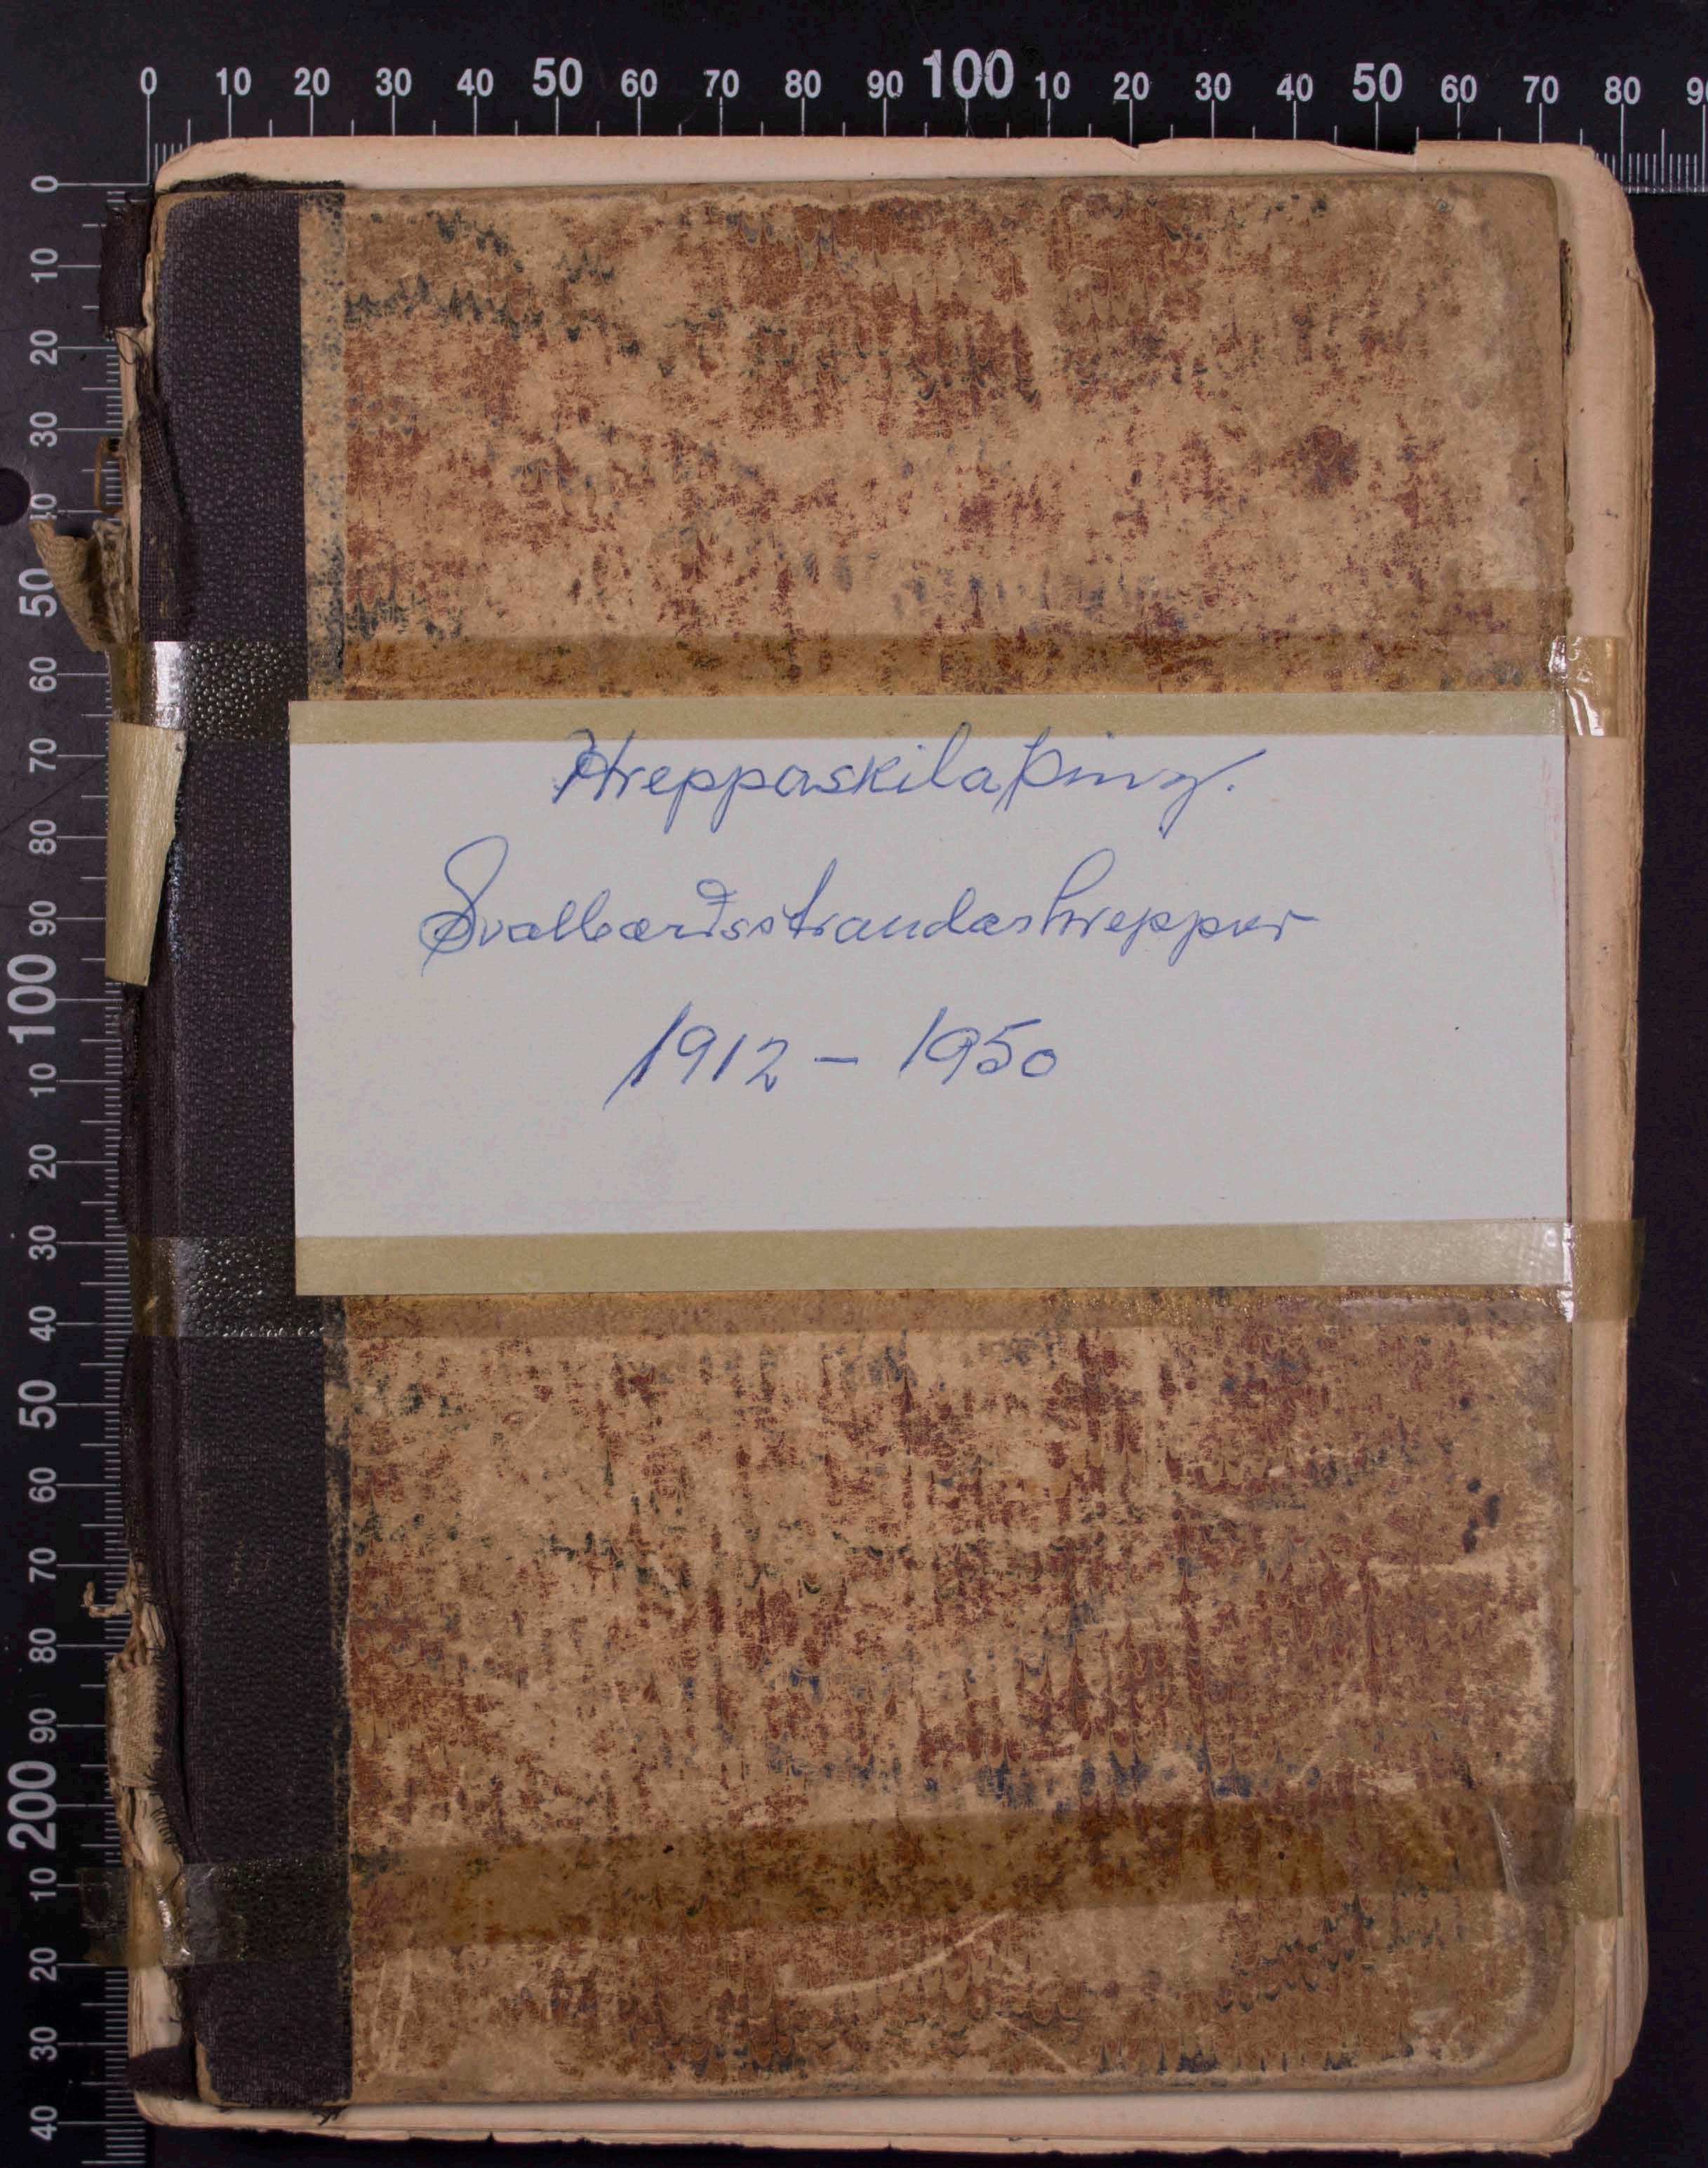 0 10 20 30 40 50 60 70 80 90 100 10 20 30 40 50 60 70 80
0
10
20
30
40
50
60
70
80
90
100
10
20
30
40
50
60
70
80
90
200
10
20
30
40
Hreppaskilaþing.
Svalbarðsstrandarhreppur
1912 - 1950